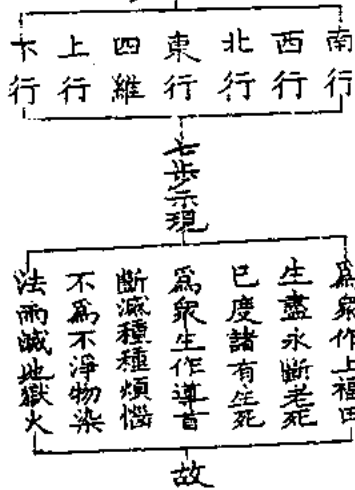 南行
西行
北行
東行
四維
上行
下行
七步示現
為眾作上福田
生盡永斷老死
已度諸有生死
為眾生作導首
斷滅種種煩惱
不為不淨物染
法雨滅地獄火
故